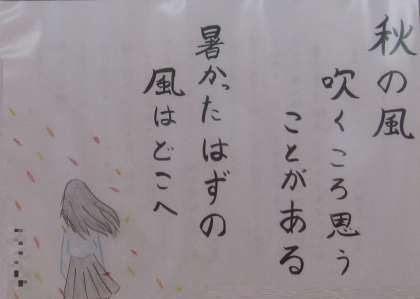 秋の風
吹くころ思う
ことがある
暑かったはずの
風はどこへ